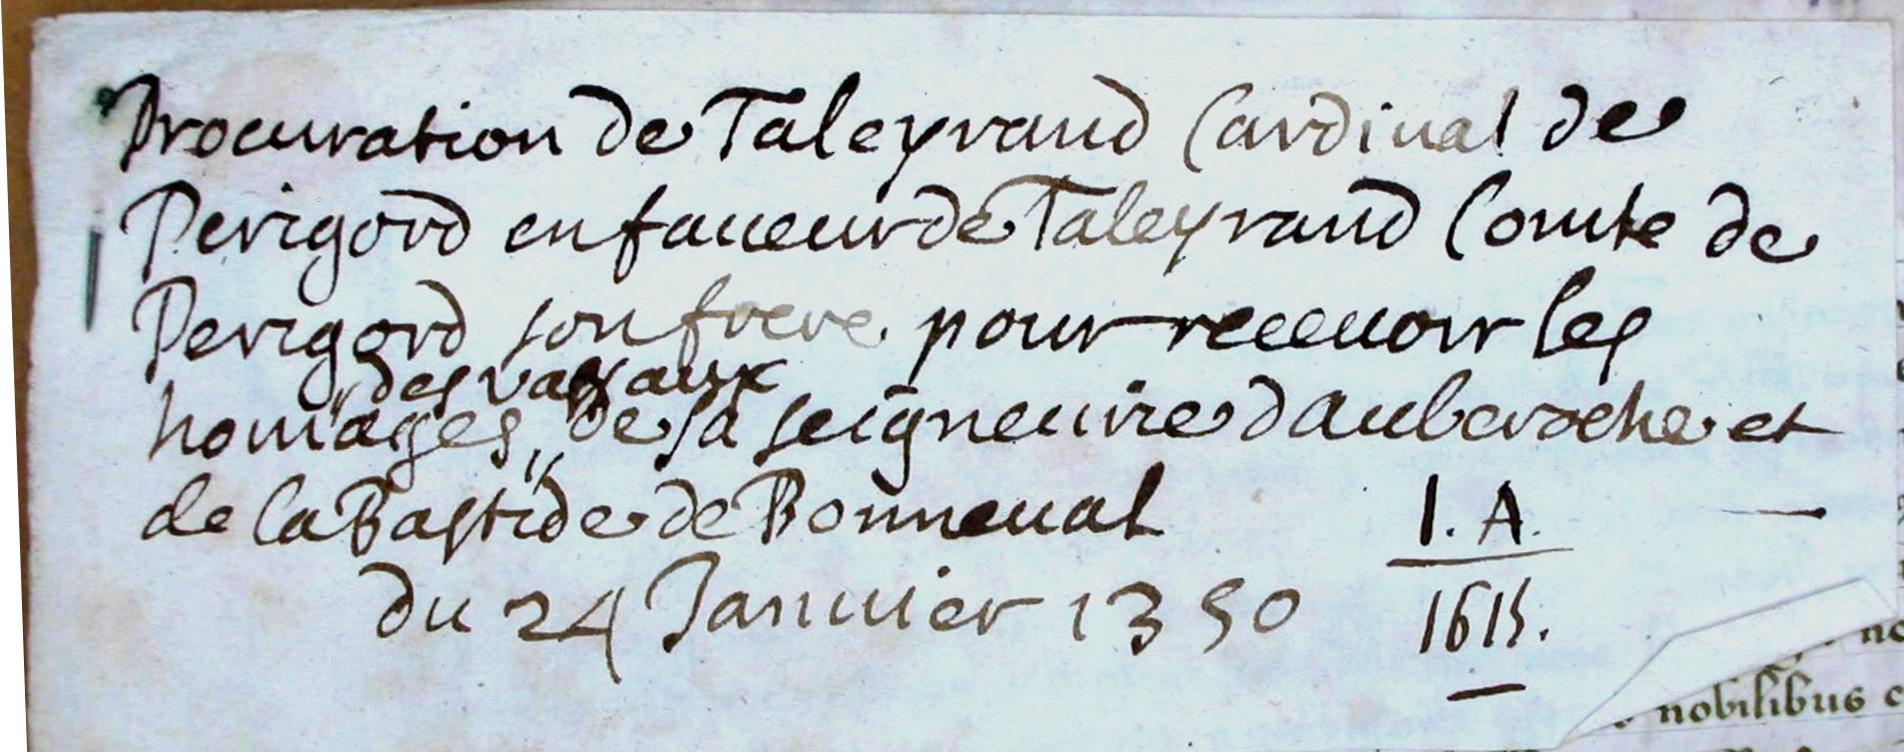 Procuration de Taleyrand Cardinal de
Perigord en faueur de Taleyrand Comte de
Perigord son frere. pour receuoir les
des vassaux
homages de sa seigneurie dauberoche et
de la Bastide de Bonneual
I. A.
du 24 Januier 1350
1615.
nobilibus